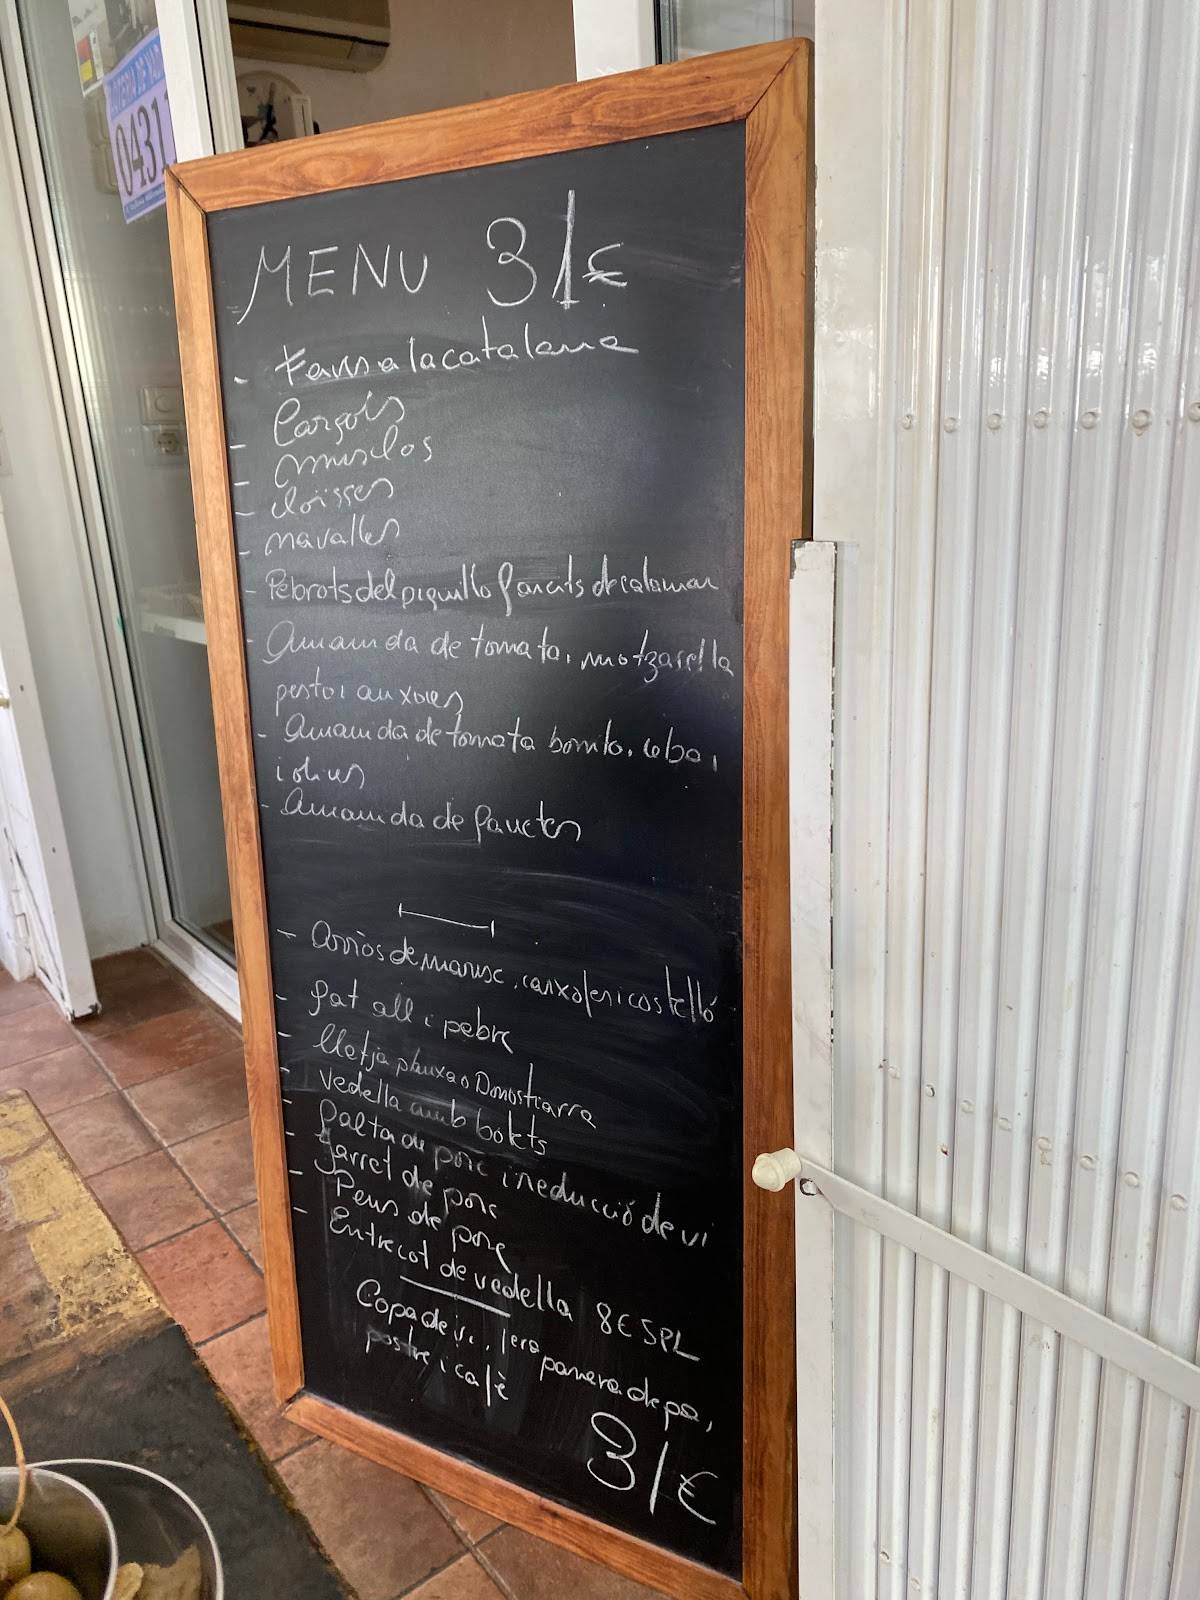 04311
MENU 31€
- Favas a la catalana
- Cargols
- musclos
- cloïsses
- navalles
- Pebrots del piquillo farcits de calamar
- Amanida de tomata, motzarella
pesto i anxoves
- Amanida de tomata bonito, ceba,
i olives
- Amanida de
- Arròs de marisc, carxofes i costelló
- Rat all i pebre
- lletja planxa o Donostiarra
- vedella amb bolets
- Galta de porc i reducció de vi
- Jarret de porc
- Peus de porc
- Entrecot de vedella 8€ SPL
Copa de vi, 1era panera de pa,
postre i cafè
31€